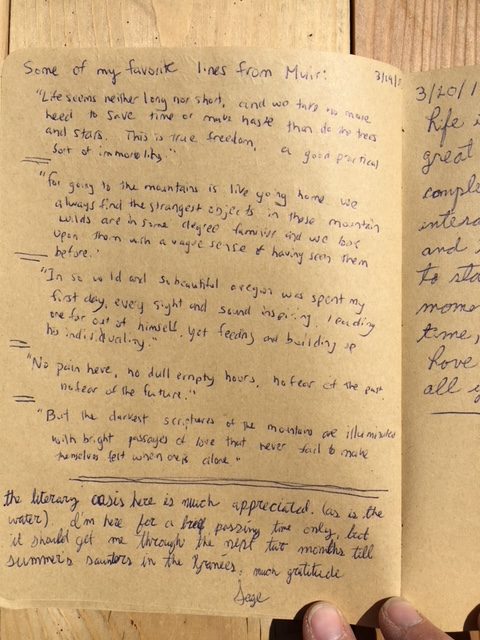 Some of my favorite lines from Muir:
3/19/1
"Life seems neither long nor short, and we take no more
heed to save time or make haste than do the trees
and stars. This is true freedom, a good practical
sort of immorality."
"For going to the mountains is like going home. We
always find the strangest objects in these mountain
wilds are in some degree familiar and we look
upon them with a vague sense of having seen them
before."
"In so wild and so beautiful a region was spent my
first day, every sight and sound inspiring, leading
one far out of himself, yet feeding and building up
his individuality."
"No pain here, no dull empty hours, no fear of the past,
no fear of the future."
"But the darkest scriptures of the mountains are illuminated
with bright passages of love that never fail to make
themselves felt when one is alone"
the literary oasis here is much appreciated. (as is the
water). I'm here for a brief passing time only, but
it should get me through the next two months till
summer's saunters in the Pyrenees. much gratitude
Sage
3/20/1
Life i
great
comple
intera
and i
to sta
momen
time,
have
all y